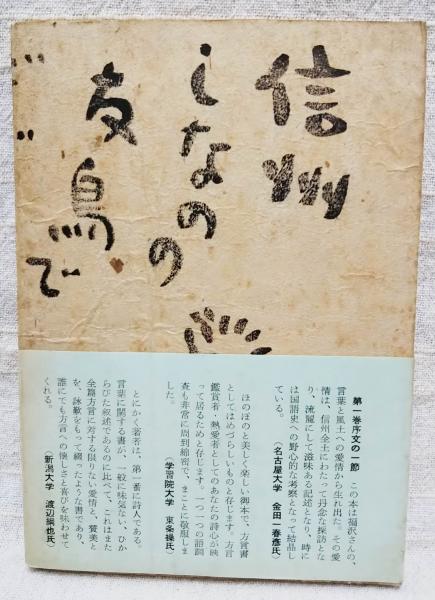 信州
しなのの
の
友鳥で
ど ど
第一巻序文の一節　この本は福沢さんの、
言葉と風土への愛情から生れ出た。その愛
情は、信州全土にわたって丹念な採訪とな
り、流麗にして滋味ある記述となり、時に
は国語史への野心的な考察となって結晶し
ている。
（名古屋大学　金田一春彦氏）
ほのぼのと美しく楽しい御本で、方言書
としてはめづらしいものと存じます。方言
鑑賞者・熱愛者としてのあなたの詩心が映
って居るためと存じます。一つ一つの語詞
査も非常に周到綿密で、まことに敬服しま
した。
（学習院大学　東条操氏）
とにかく著者は、第一番に詩人である。
言葉に関する書が、一般に味気ない、ひか
らびた叙述であるのに比べて、これはまた
全篇方言に対する限りない愛情と、賛美と
を、詠歎をもって綴ったような書であり、
誰にでも方言への懐しさと喜びを味わせて
くれる。
（新潟大学　渡辺綱也氏）